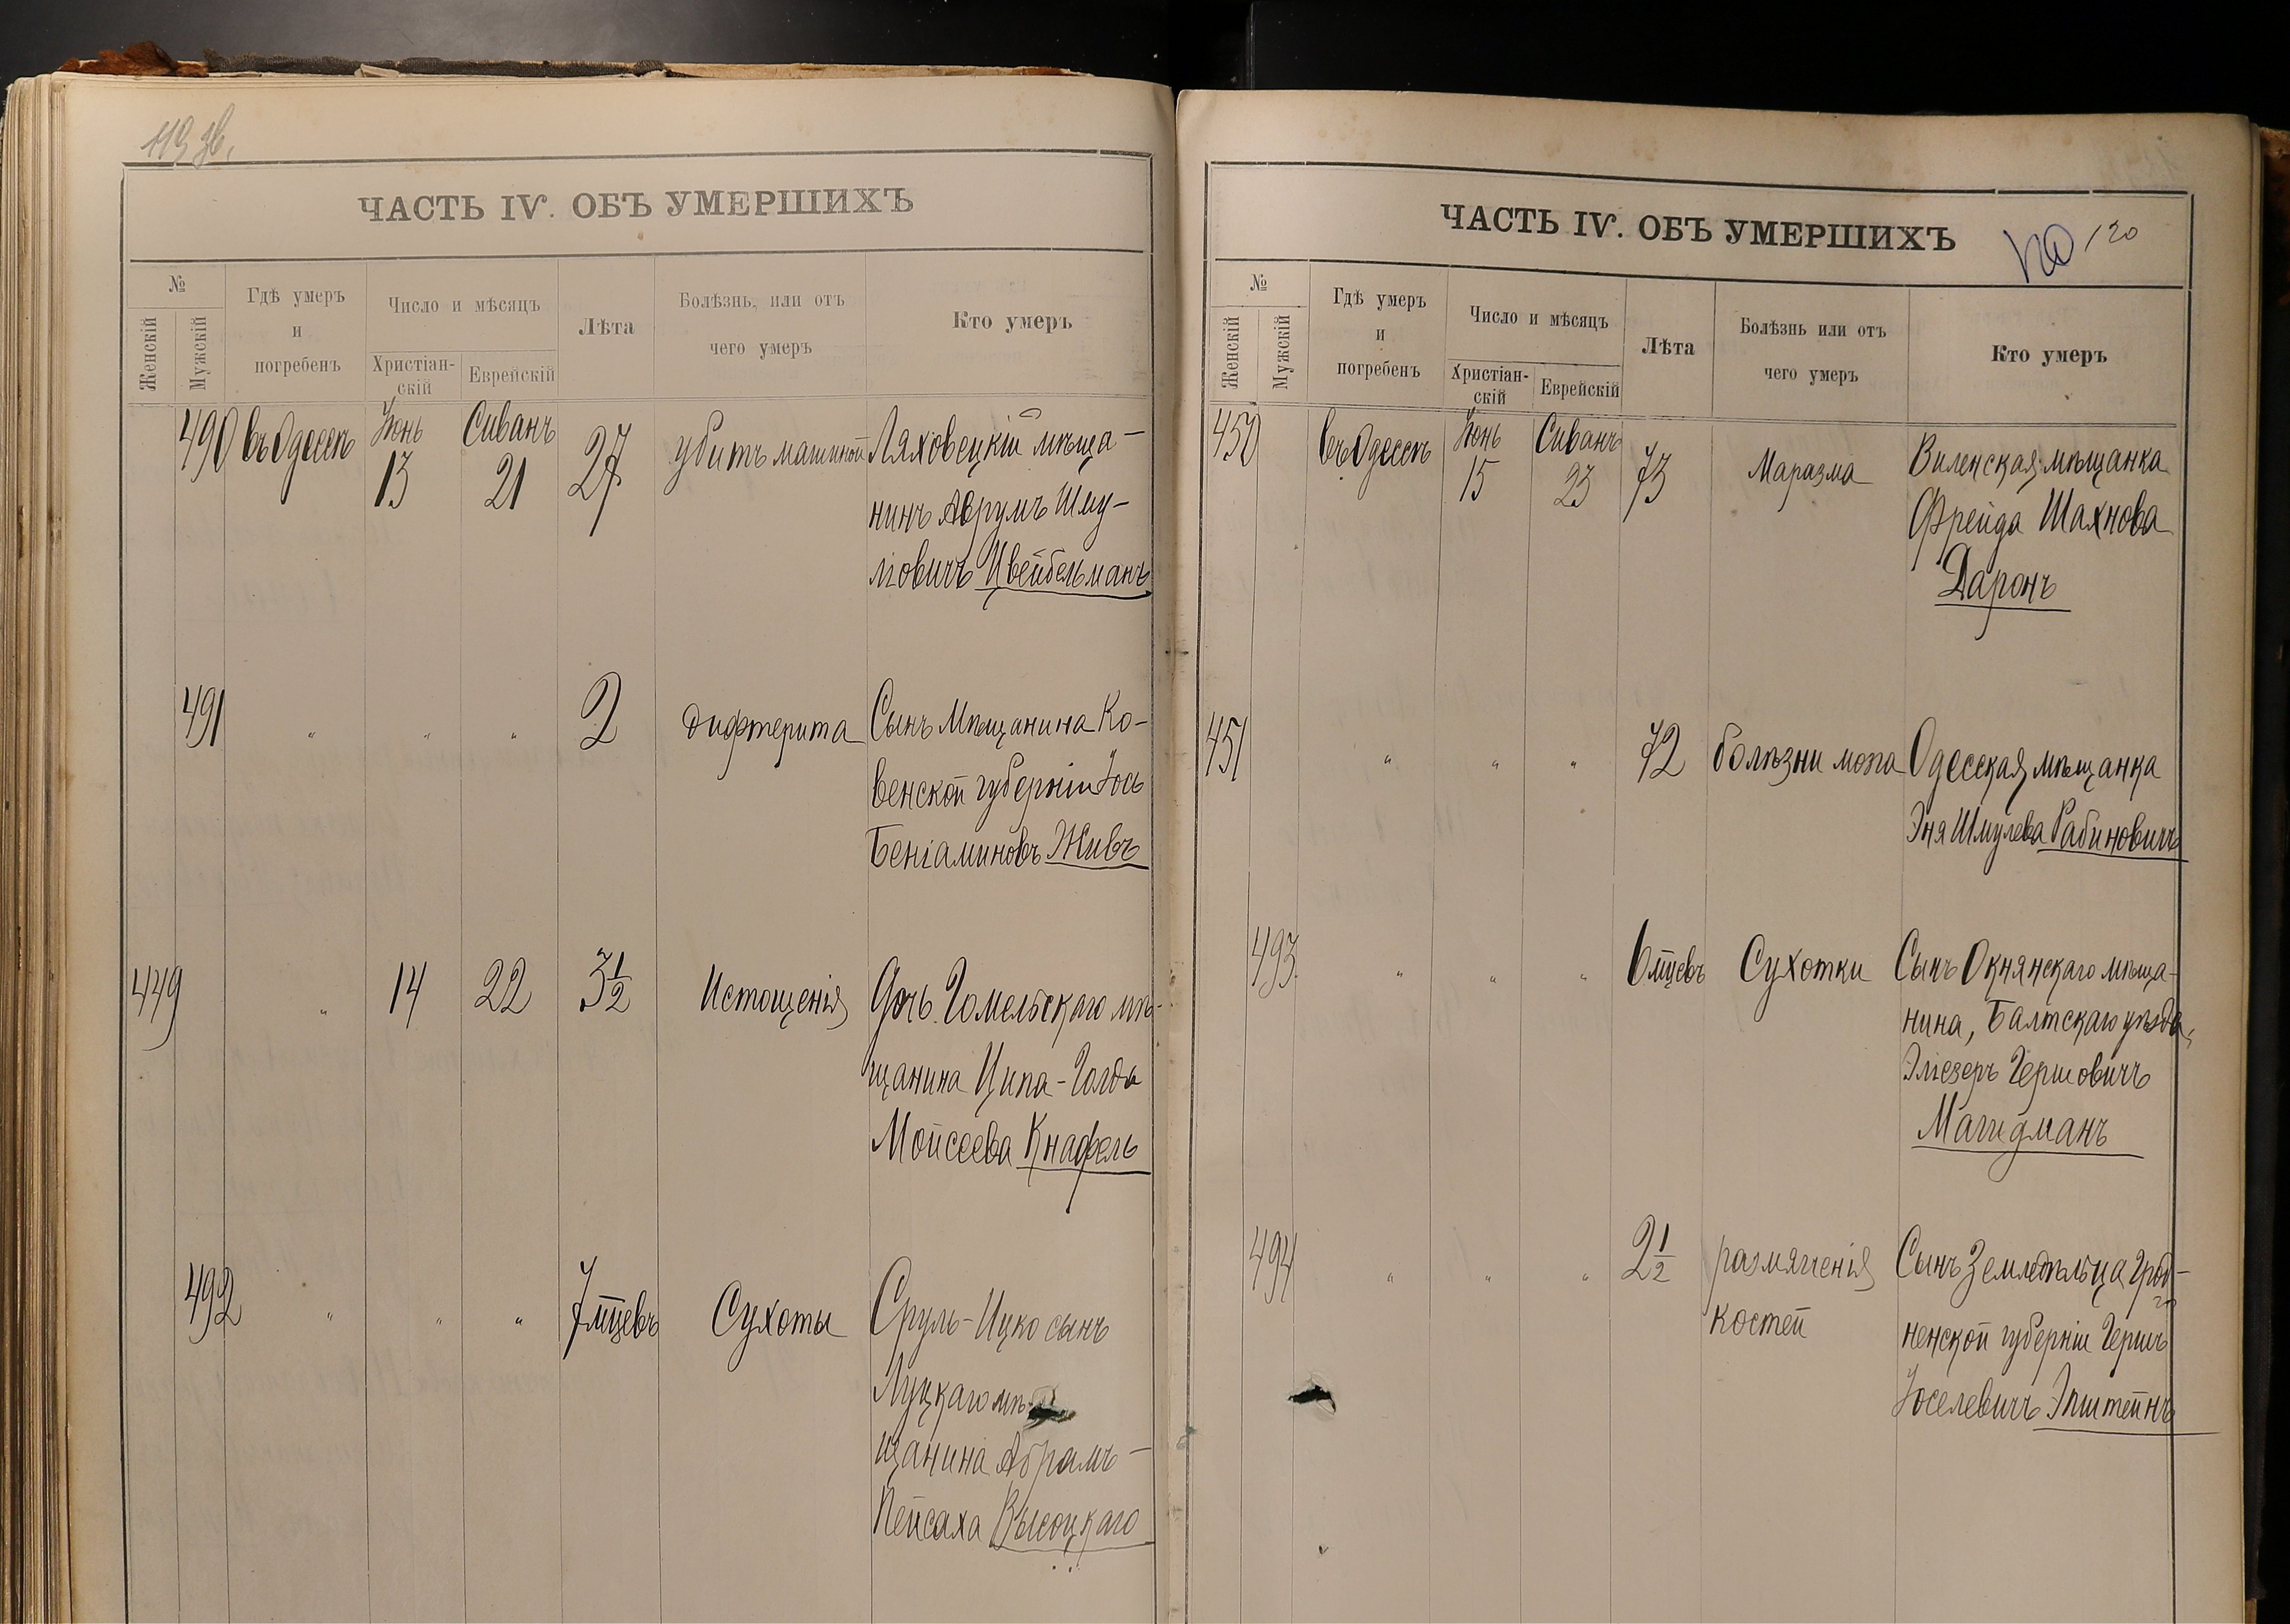 119 об.
ЧАСТЬ IV. ОБЪ УМЕРШИХЪ
№
Женскій
Мужскій
Гдѣ умеръ
и
погребенъ
Число и мѣсяцъ
Христіан-
скій
Еврейскій
Лѣта
Болѣзнь, или отъ
чего умеръ
Кто умеръ
490 въ Одессѣ Іюнь 13 Сиванъ 21 27 убитъ машиной Ляховецкій мѣща-
нинъ Абрумъ Шму-
ліовичъ Цвейбельманъ
491 " " " 2 дифтерита Сынъ Мѣщанина Ко-
венской губерніи Іось
Беніаминовъ Живъ
449 " 14 22 3 1/2 Истощенія Дочь Гомельскаго мѣ-
щанина Ципа-Голда
Мойсеева Кнафель
492 " " " 7 мцевъ Сухоты Сруль-Ицко сынъ
Луцкаго мѣ-
щанина Абрамъ-
Пейсаха Высоцкаго
ЧАСТЬ IV. ОБЪ УМЕРШИХЪ
120
№
Женскій
Мужскій
Гдѣ умеръ
и
погребенъ
Число и мѣсяцъ
Христіан-
скій
Еврейскій
Лѣта
Болѣзнь или отъ
чего умеръ
Кто умеръ
450 въ Одессѣ Іюнь 15 Сиванъ 23 73 Маразма Виленская мѣщанка
Фрейда Шахнова
Даронъ
451 " " " 72 болѣзни мозга Одесская мѣщанка
Эня Шмулева Рабиновичъ
493 " " " 6 мцевъ Сухотки Сынъ Окнянскаго мѣща-
нина, Балтскаго уѣзда,
Эліезеръ Гершовичъ
Магидманъ
494 " " " 2 1/2 размягченія
костей
Сынъ Земледѣльца Грод-
ненской губерніи Гершъ
Іоселевичъ Эпштейнъ